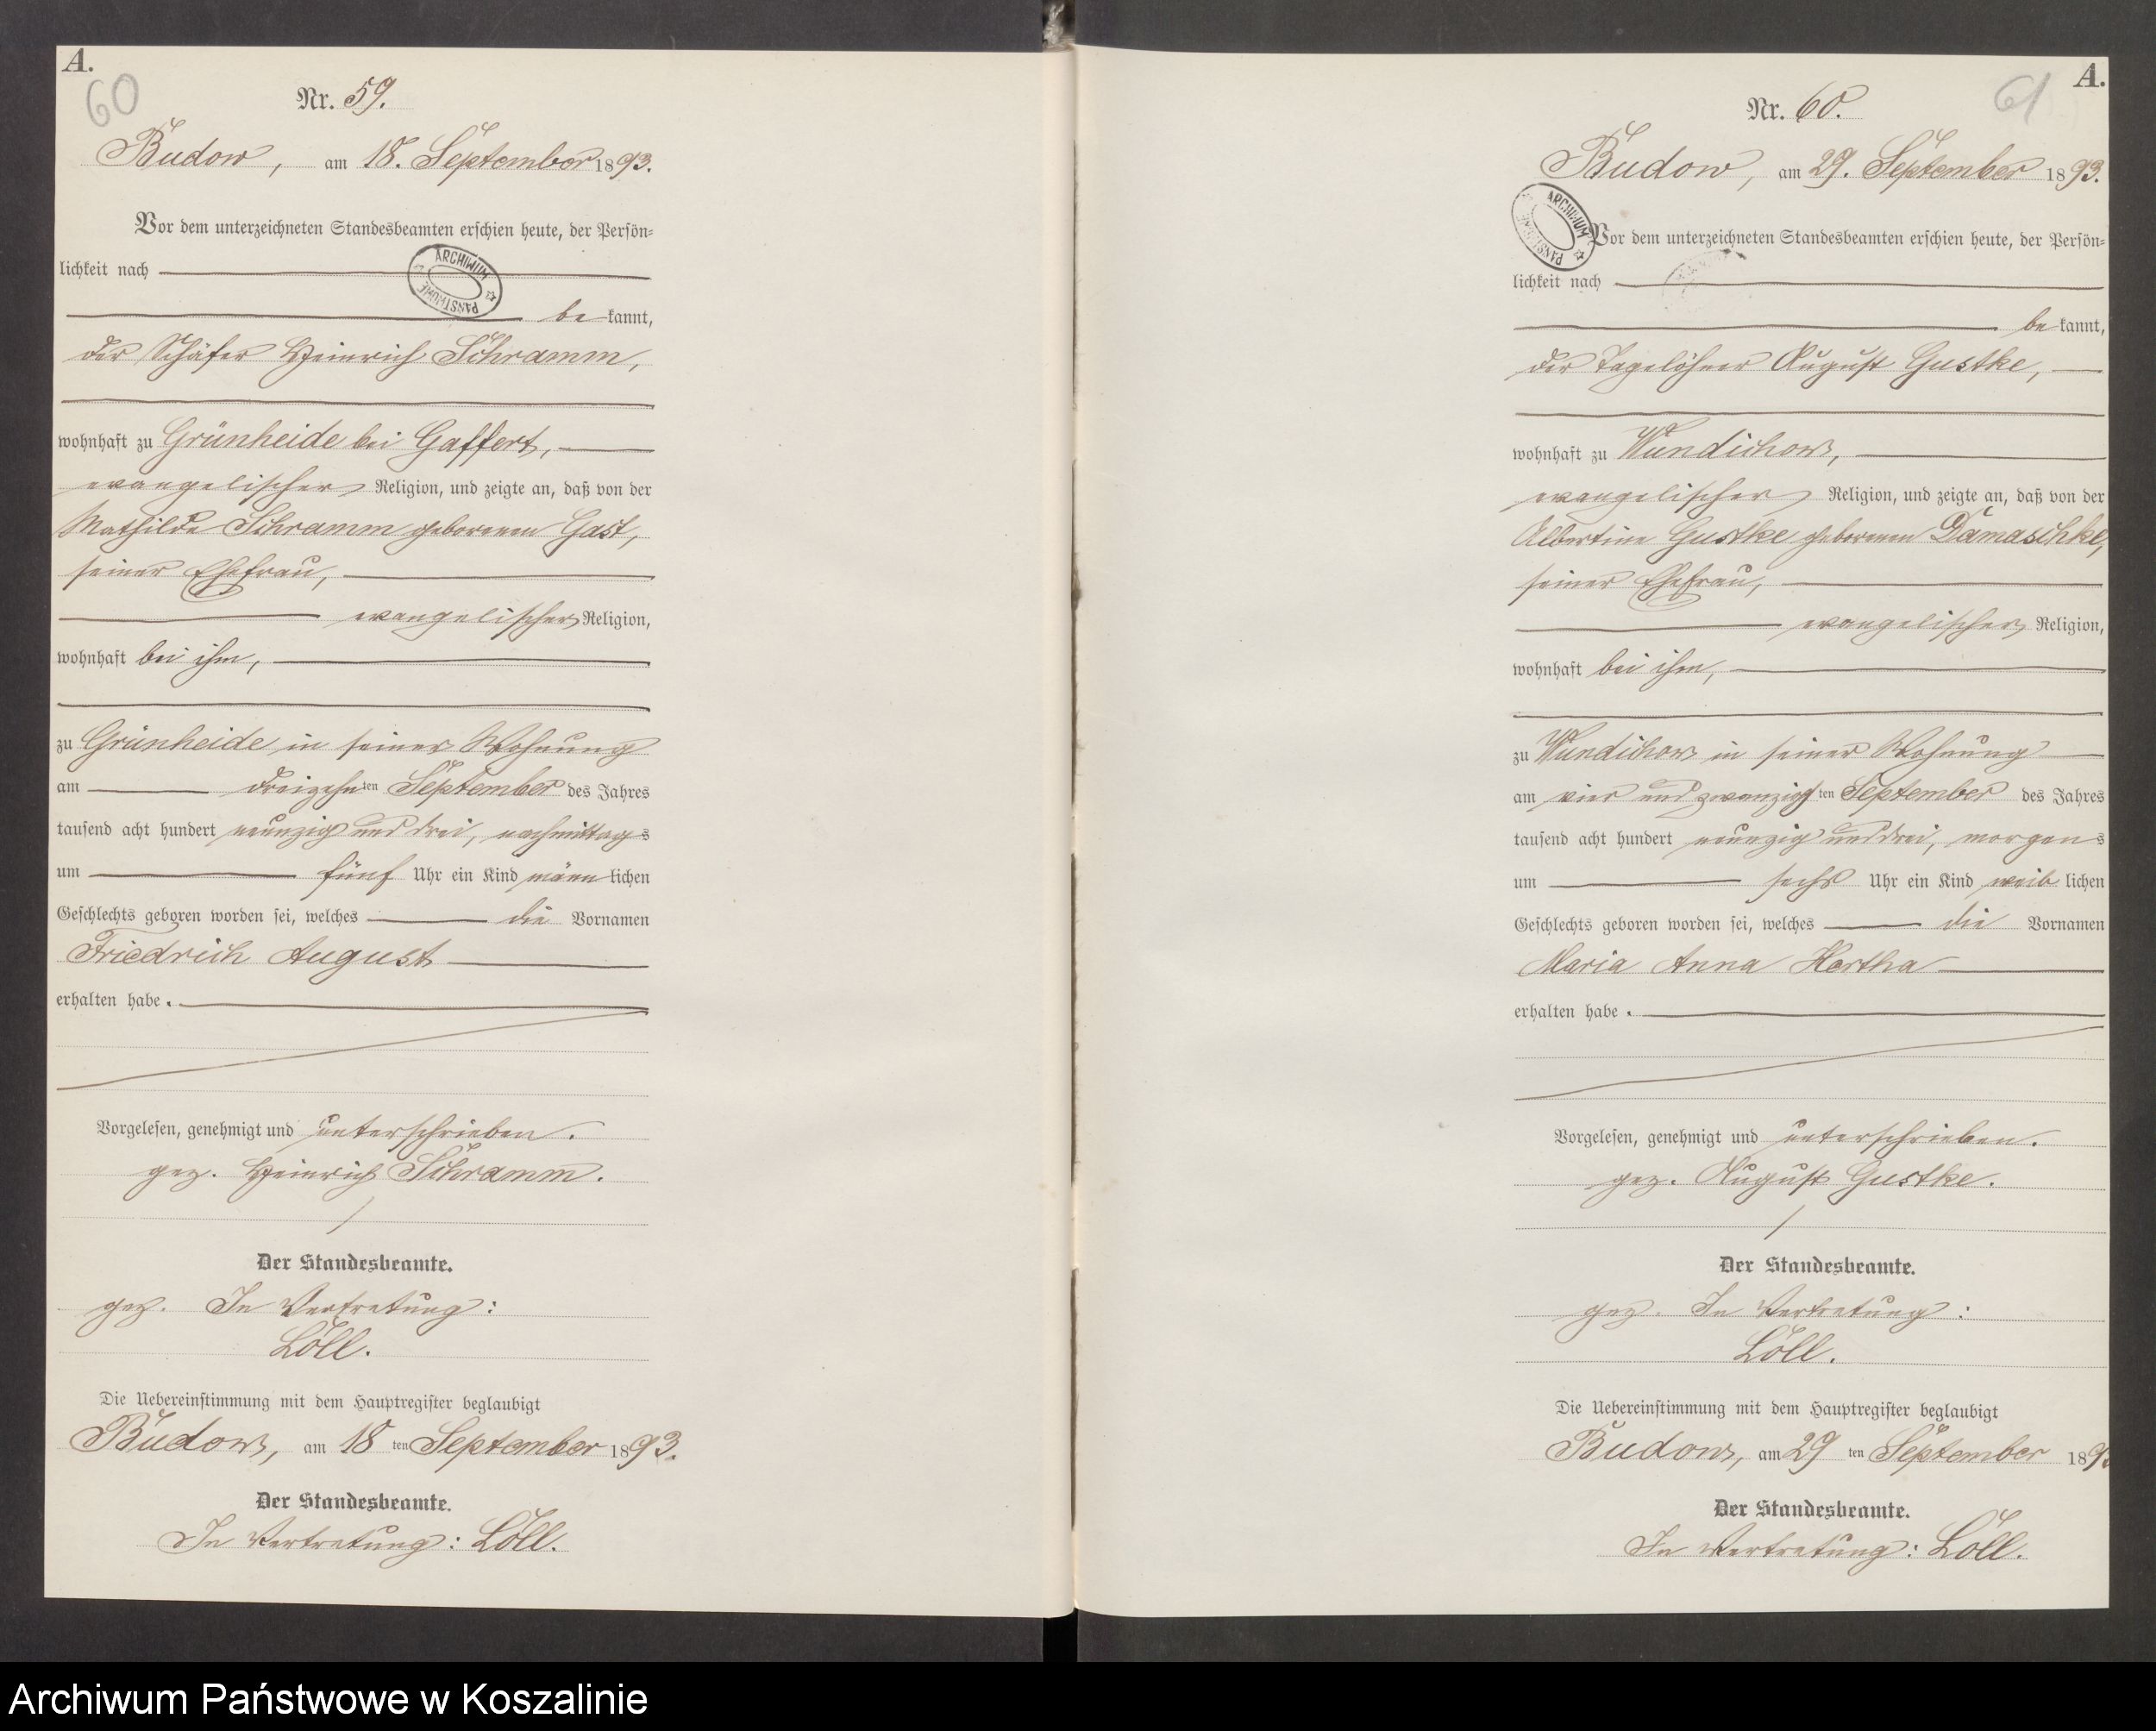 A.
60
Nr. 59.
Budow, am 18. September 1893.
Vor dem unterzeichneten Standesbeamten erschien heute, der Persön=
lichkeit nach
ARCHIWUM PAŃSTWOWE
be kannt,
der Schäfer Heinrich Schramm,
wohnhaft zu Grünheide bei Gaffert,
evangelischer Religion, und zeigte an, daß von der
Mathilde Schramm geborenen Gast,
seiner Ehefrau,
evangelischer Religion,
wohnhaft bei ihm,
zu Grünheide in seiner Wohnung
am dreizehn ten September des Jahres
tausend acht hundert neunzig und drei, nachmittag s
um fünf Uhr ein Kind männ lichen
Geschlechts geboren worden sei, welches die Vornamen
Friedrich August
erhalten habe.
Vorgelesen, genehmigt und unterschrieben.
gez. Heinrich Schramm.
Der Standesbeamte.
gez. In Vertretung:
Löll.
Die Uebereinstimmung mit dem Hauptregister beglaubigt
Budow, am 18 ten September 1893.
Der Standesbeamte.
In Vertretung: Löll.
A.
61
Nr. 60.
Budow, am 29. September 1893.
ARCHIWUM PAŃSTWOWE
Vor dem unterzeichneten Standesbeamten erschien heute, der Persön=
lichkeit nach
be kannt,
der Tagelöhner August Gustke,
wohnhaft zu Wundichow,
evangelischer Religion, und zeigte an, daß von der
Albertine Gustke geborenen Damaschke,
seiner Ehefrau,
evangelischer Religion,
wohnhaft bei ihm,
zu Wundichow in seiner Wohnung
am vier und zwanzigs ten September des Jahres
tausend acht hundert neunzig und drei, morgen s
um sechs Uhr ein Kind weib lichen
Geschlechts geboren worden sei, welches die Vornamen
Maria Anna Hertha
erhalten habe.
Vorgelesen, genehmigt und unterschrieben.
gez. August Gustke.
Der Standesbeamte.
gez. In Vertretung:
Löll.
Die Uebereinstimmung mit dem Hauptregister beglaubigt
Budow, am 29 ten September 189
Der Standesbeamte.
In Vertretung: Löll.
Archiwum Państwowe w Koszalinie